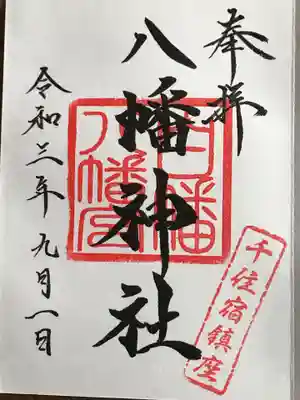 奉拝
八幡神社
千住宿鎮座
令和三年九月一日